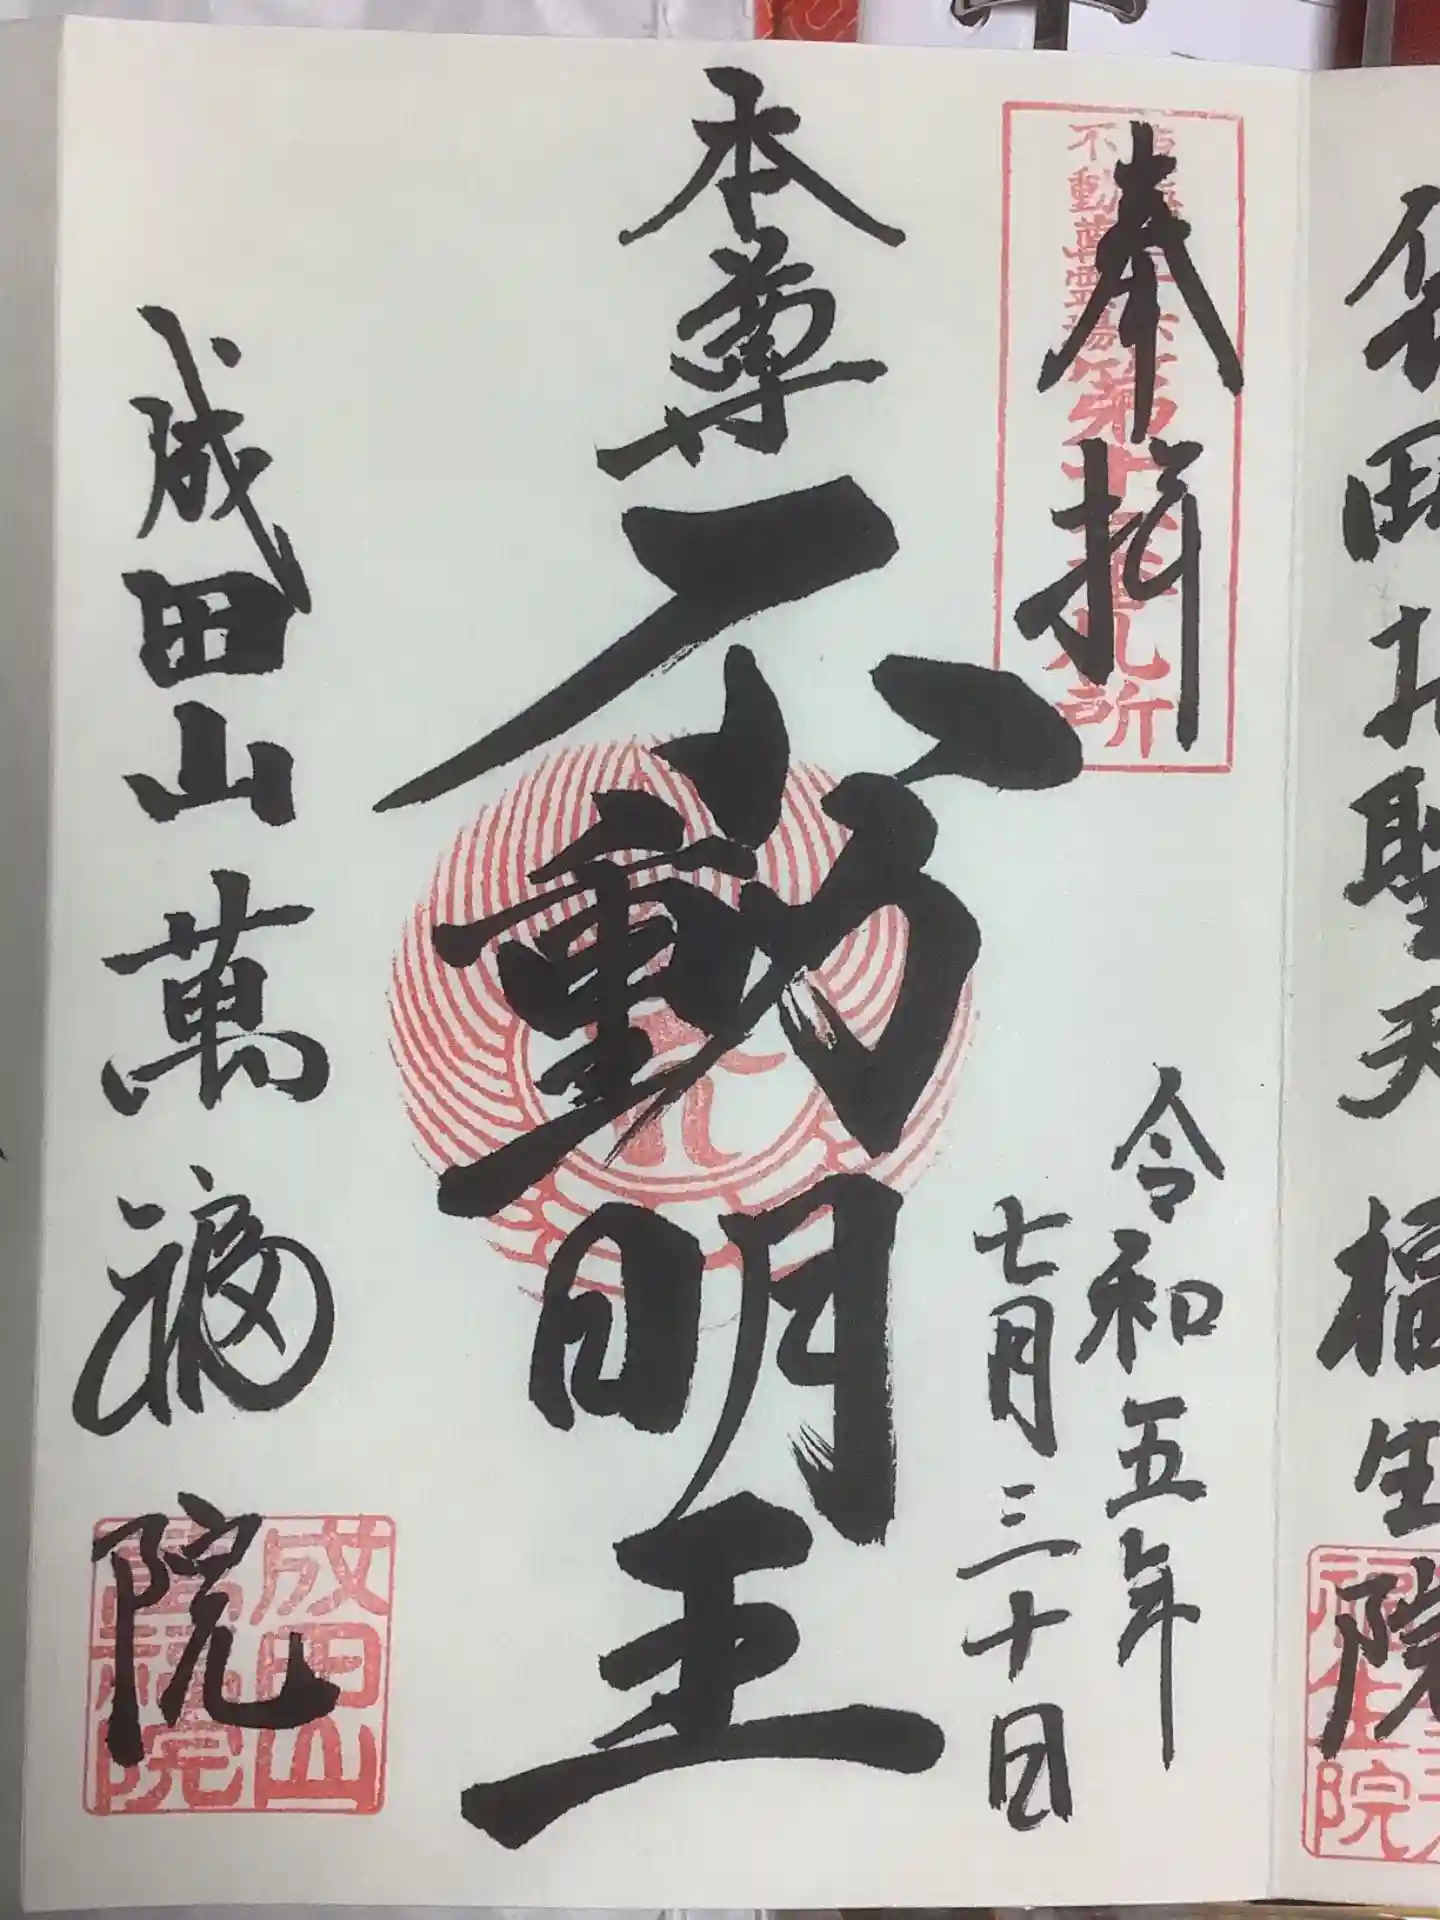 奉拝
不動尊霊場
第十三番札所
令和五年
七月三十日
本尊
不動明王
成田山萬福院
成田山
萬福院
聖天
福生院
福生院